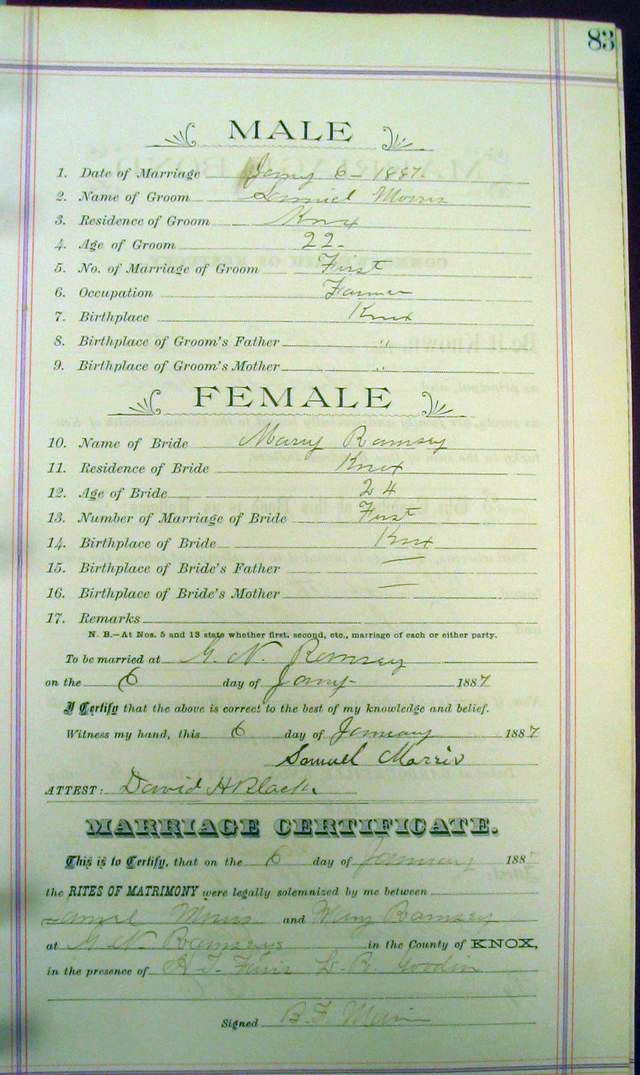 83
MALE
1. Date of Marriage Jany 6- 1887
2. Name of Groom Samuel Morris
3. Residence of Groom Knox
4. Age of Groom 22-
5. No. of Marriage of Groom First
6. Occupation Farmer
7. Birthplace Knox
8. Birthplace of Groom's Father "
9. Birthplace of Groom's Mother "
FEMALE
10. Name of Bride Mary Ramsey
11. Residence of Bride Knox
12. Age of Bride 24
13. Number of Marriage of Bride First
14. Birthplace of Bride Knox
15. Birthplace of Bride's Father —
16. Birthplace of Bride's Mother —
17. Remarks
N. B.—At Nos. 5 and 13 state whether first, second, etc., marriage of each or either party.
To be married at G. N. Ramsey
on the 6 day of Jany- 1887
I Certify that the above is correct to the best of my knowledge and belief.
Witness my hand, this 6 day of January 1887
Samuel Morris
ATTEST: David H Black
MARRIAGE CERTIFICATE.
This is to Certify, that on the 6 day of January 188
the RITES OF MATRIMONY were legally solemnized by me between
Samuel Morris and Mary Ramsey
at G. N. Ramseys in the County of KNOX,
in the presence of Goodin
Signed B. F.